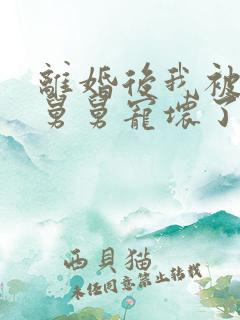 離婚後我被
舅舅寵壞了
西貝猫
未經同意禁止轉載